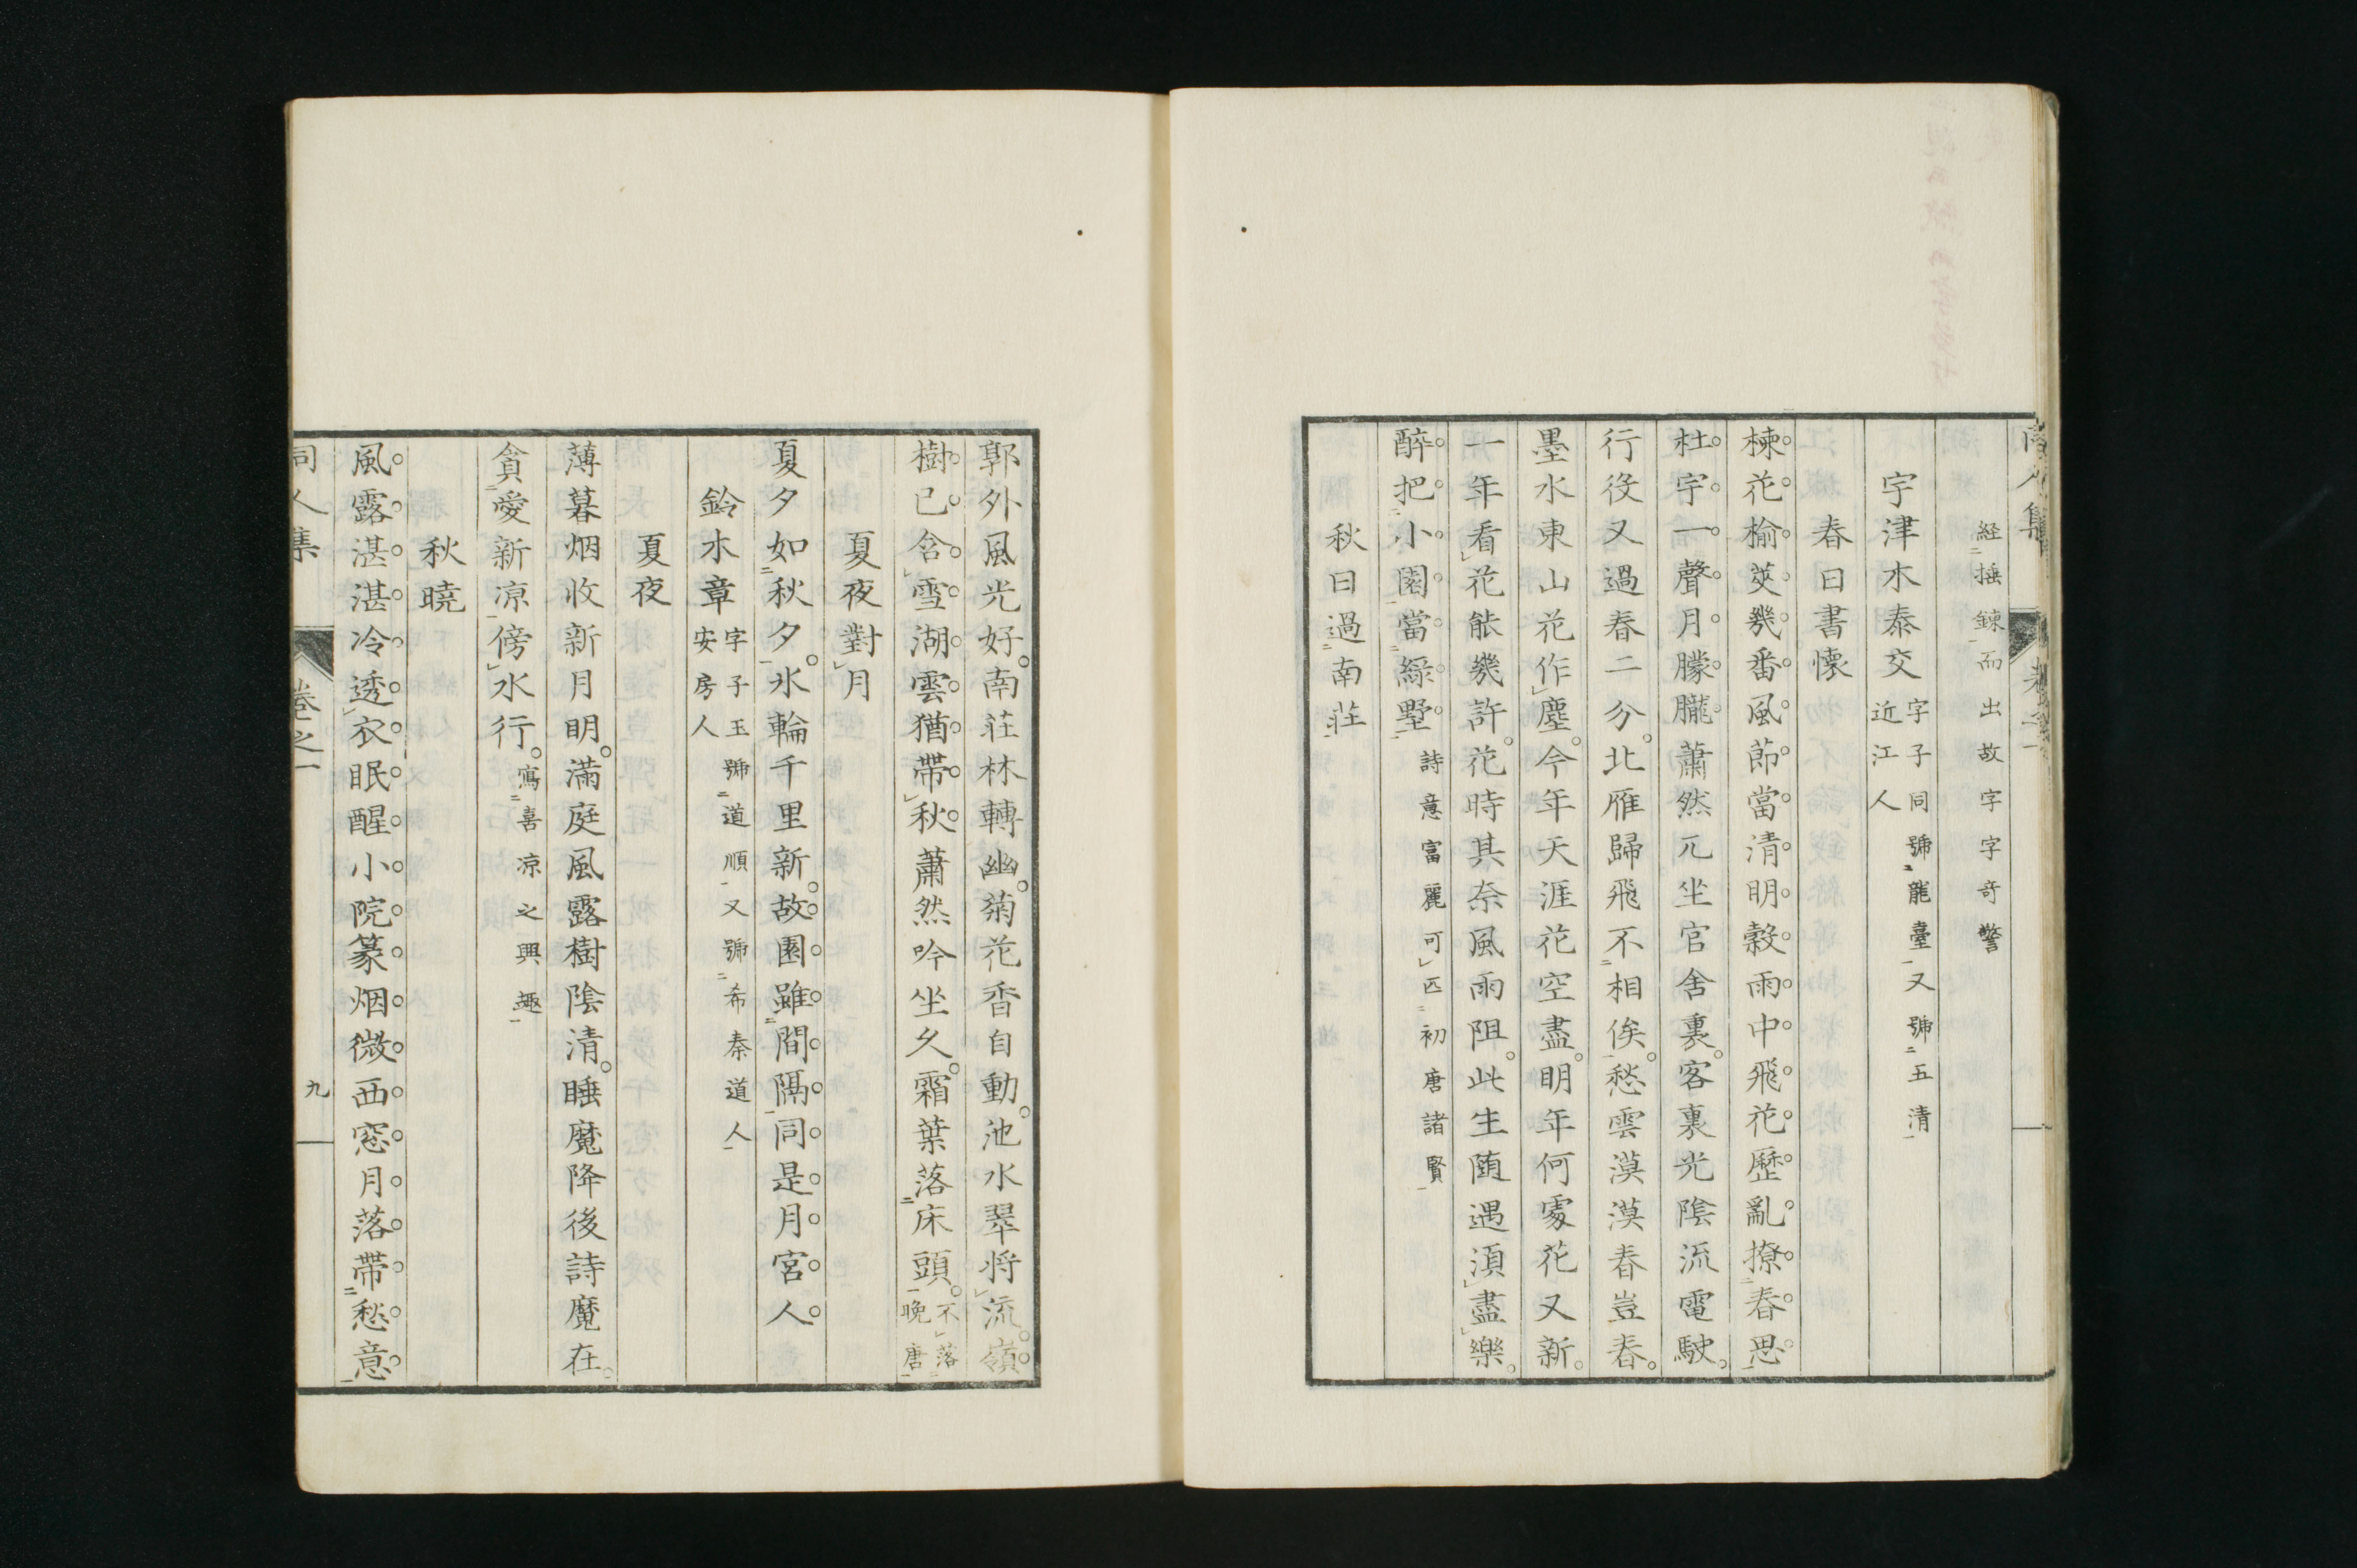 経揺錬而出故字字奇警
宇津木泰交 字子同 近江人 號龍臺又號五清
春日書懷
楝花榆莢幾番風節當清明穀雨中飛花歷亂撩春思
杜宇一聲月朦朧蕭然兀坐官舍裏客裏光陰流電駛
行役又過春二分北雁歸飛不相俟愁雲漠漠春豈春
墨水東山花作塵今年天涯花空盡明年何處花又新
一年看花能幾許花時其奈風雨阻此生随遇須盡樂
醉把小園當緑墅 詩意富麗可匹初唐諸賢
秋日過南莊
郭外風光好南莊林轉幽菊花香自動池水翠将流嶺
樹已含雪湖雲猶帶秋蕭然吟坐久霜葉落床頭 不落晩唐
夏夜對月
夏夕如秋夕氷輪千里新故園雖間隔同是月宮人
鈴木章 字子玉 安房人 號道順又號希秦道人
夏夜
薄暮烟收新月明滿庭風露樹陰清睡魔降後詩魔在
貪愛新凉傍水行 寫喜凉之興趣
秋曉
風露湛湛冷透衣眠醒小院篆烟微西窓月落帶愁意
同人集 卷之一 九